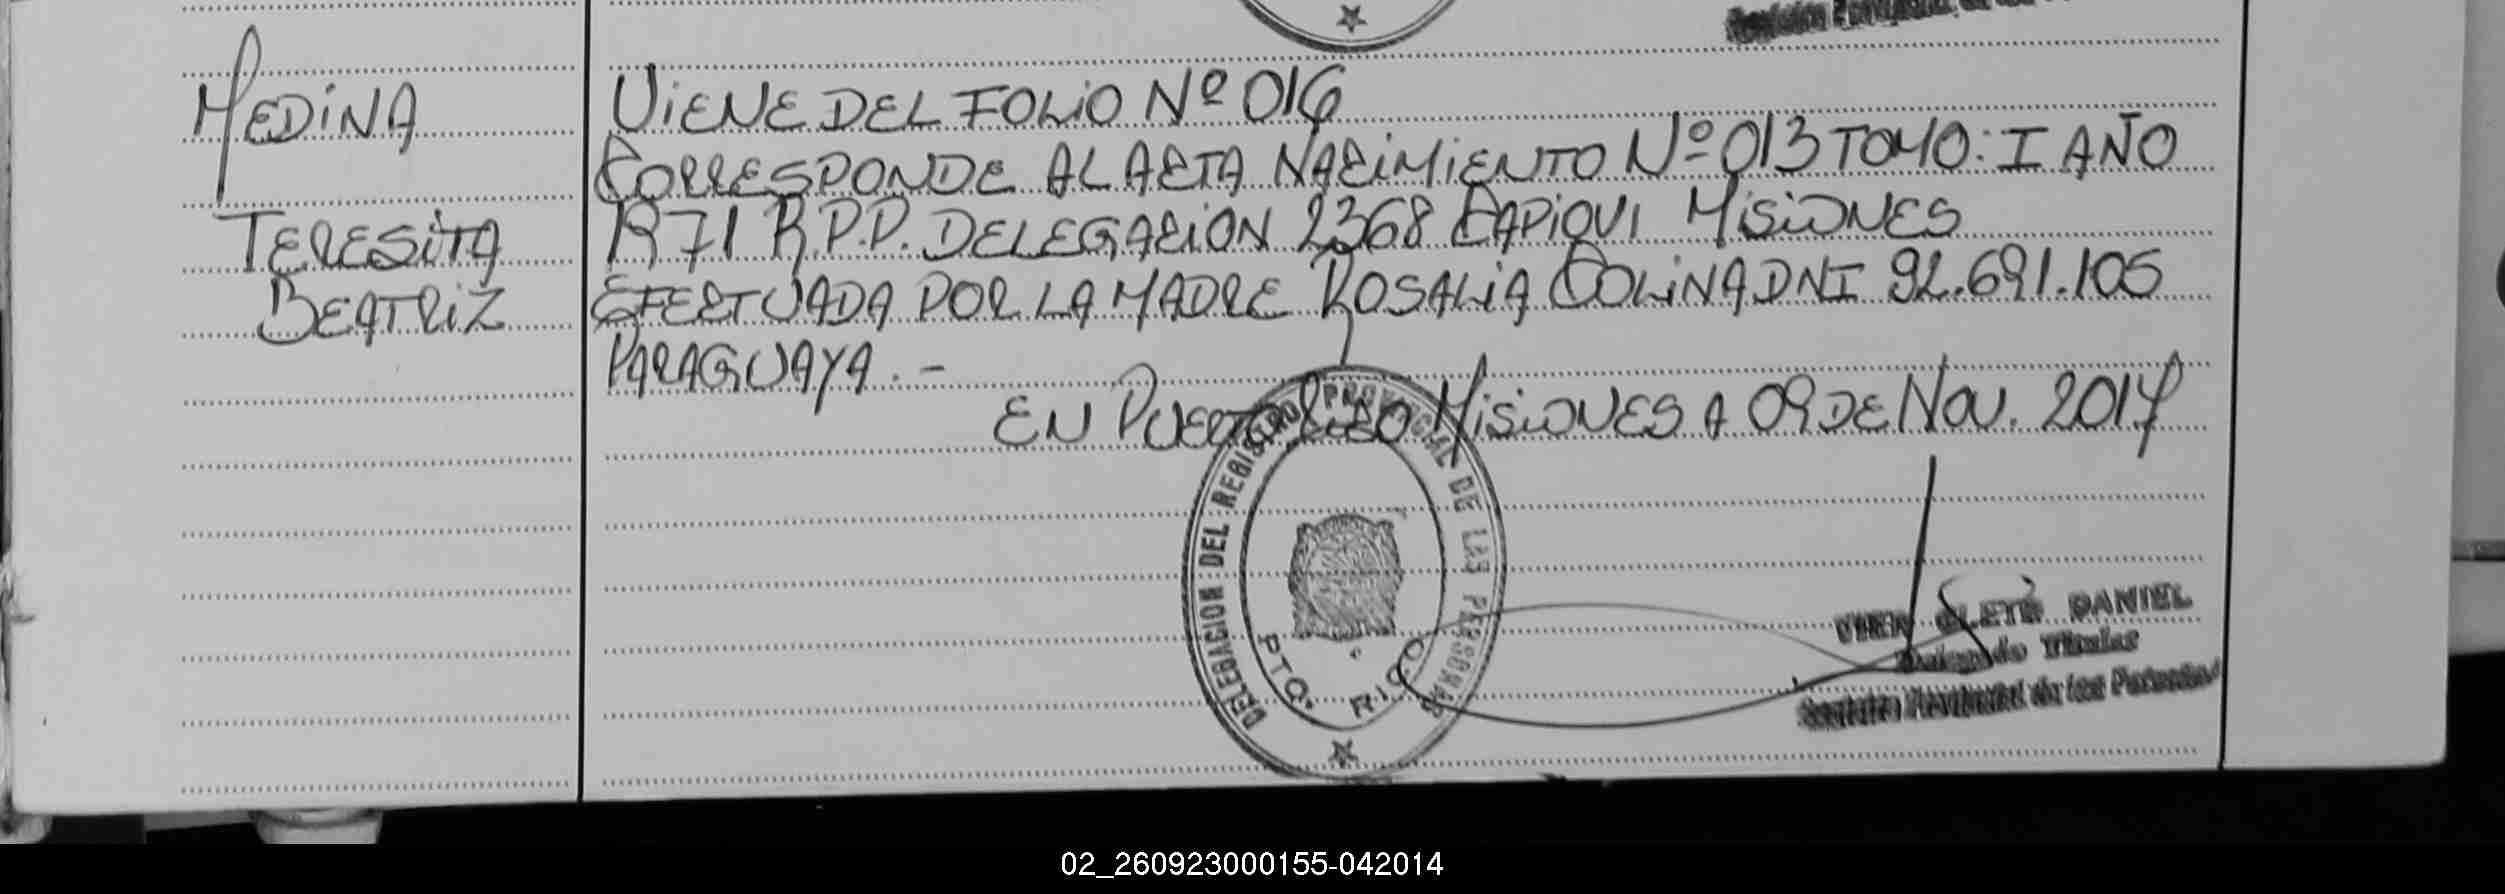 MEDINA
TERESITA
BEATRIZ
VIENE DEL FOLIO Nº 016
CORRESPONDE AL ACTA NACIMIENTO Nº 013 TOMO: I AÑO
1971 R.P.P. DELEGACION 2368 CAPIOVI MISIONES
EFECTUADA POR LA MADRE ROSALIA COLINA DNI 92.691.105
PARAGUAYA.-
EN PUERTO RICO MISIONES A 09 DE NOV. 2017
DELEGACION DEL REGISTRO PROVINCIAL DE LAS PERSONAS
PTO. RICO
DANIEL
Delegado Titular
Provincial de las Personas
02_260923000155-042014